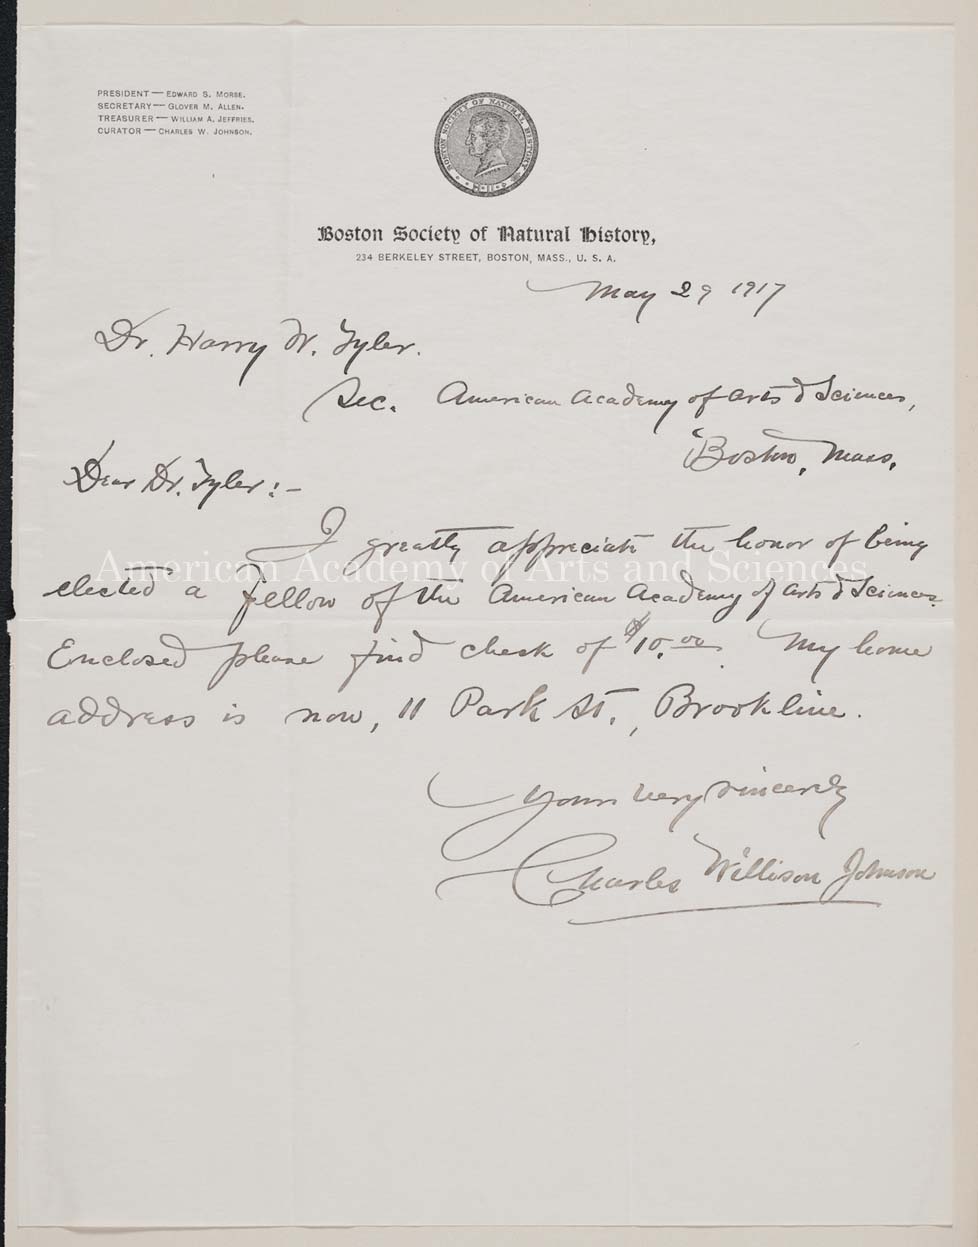 PRESIDENT — EDWARD S. MORSE.
SECRETARY — GLOVER M. ALLEN.
TREASURER — WILLIAM A. JEFFRIES.
CURATOR — CHARLES W. JOHNSON.
BOSTON SOCIETY OF NATURAL HISTORY
Boston Society of Natural History,
234 BERKELEY STREET, BOSTON, MASS., U. S. A.
May 29 1917
Dr. Harry W. Tyler.
Sec. American Academy of Arts & Sciences,
Boston, Mass.
Dear Dr. Tyler:-
I greatly appreciate the honor of being
American Academy of Arts and Sciences
elected a Fellow of the American Academy of Arts & Sciences.
Enclosed please find check of $10.00. My home
address is now, 11 Park St., Brookline.
Yours very sincerely
Charles Willison Johnson